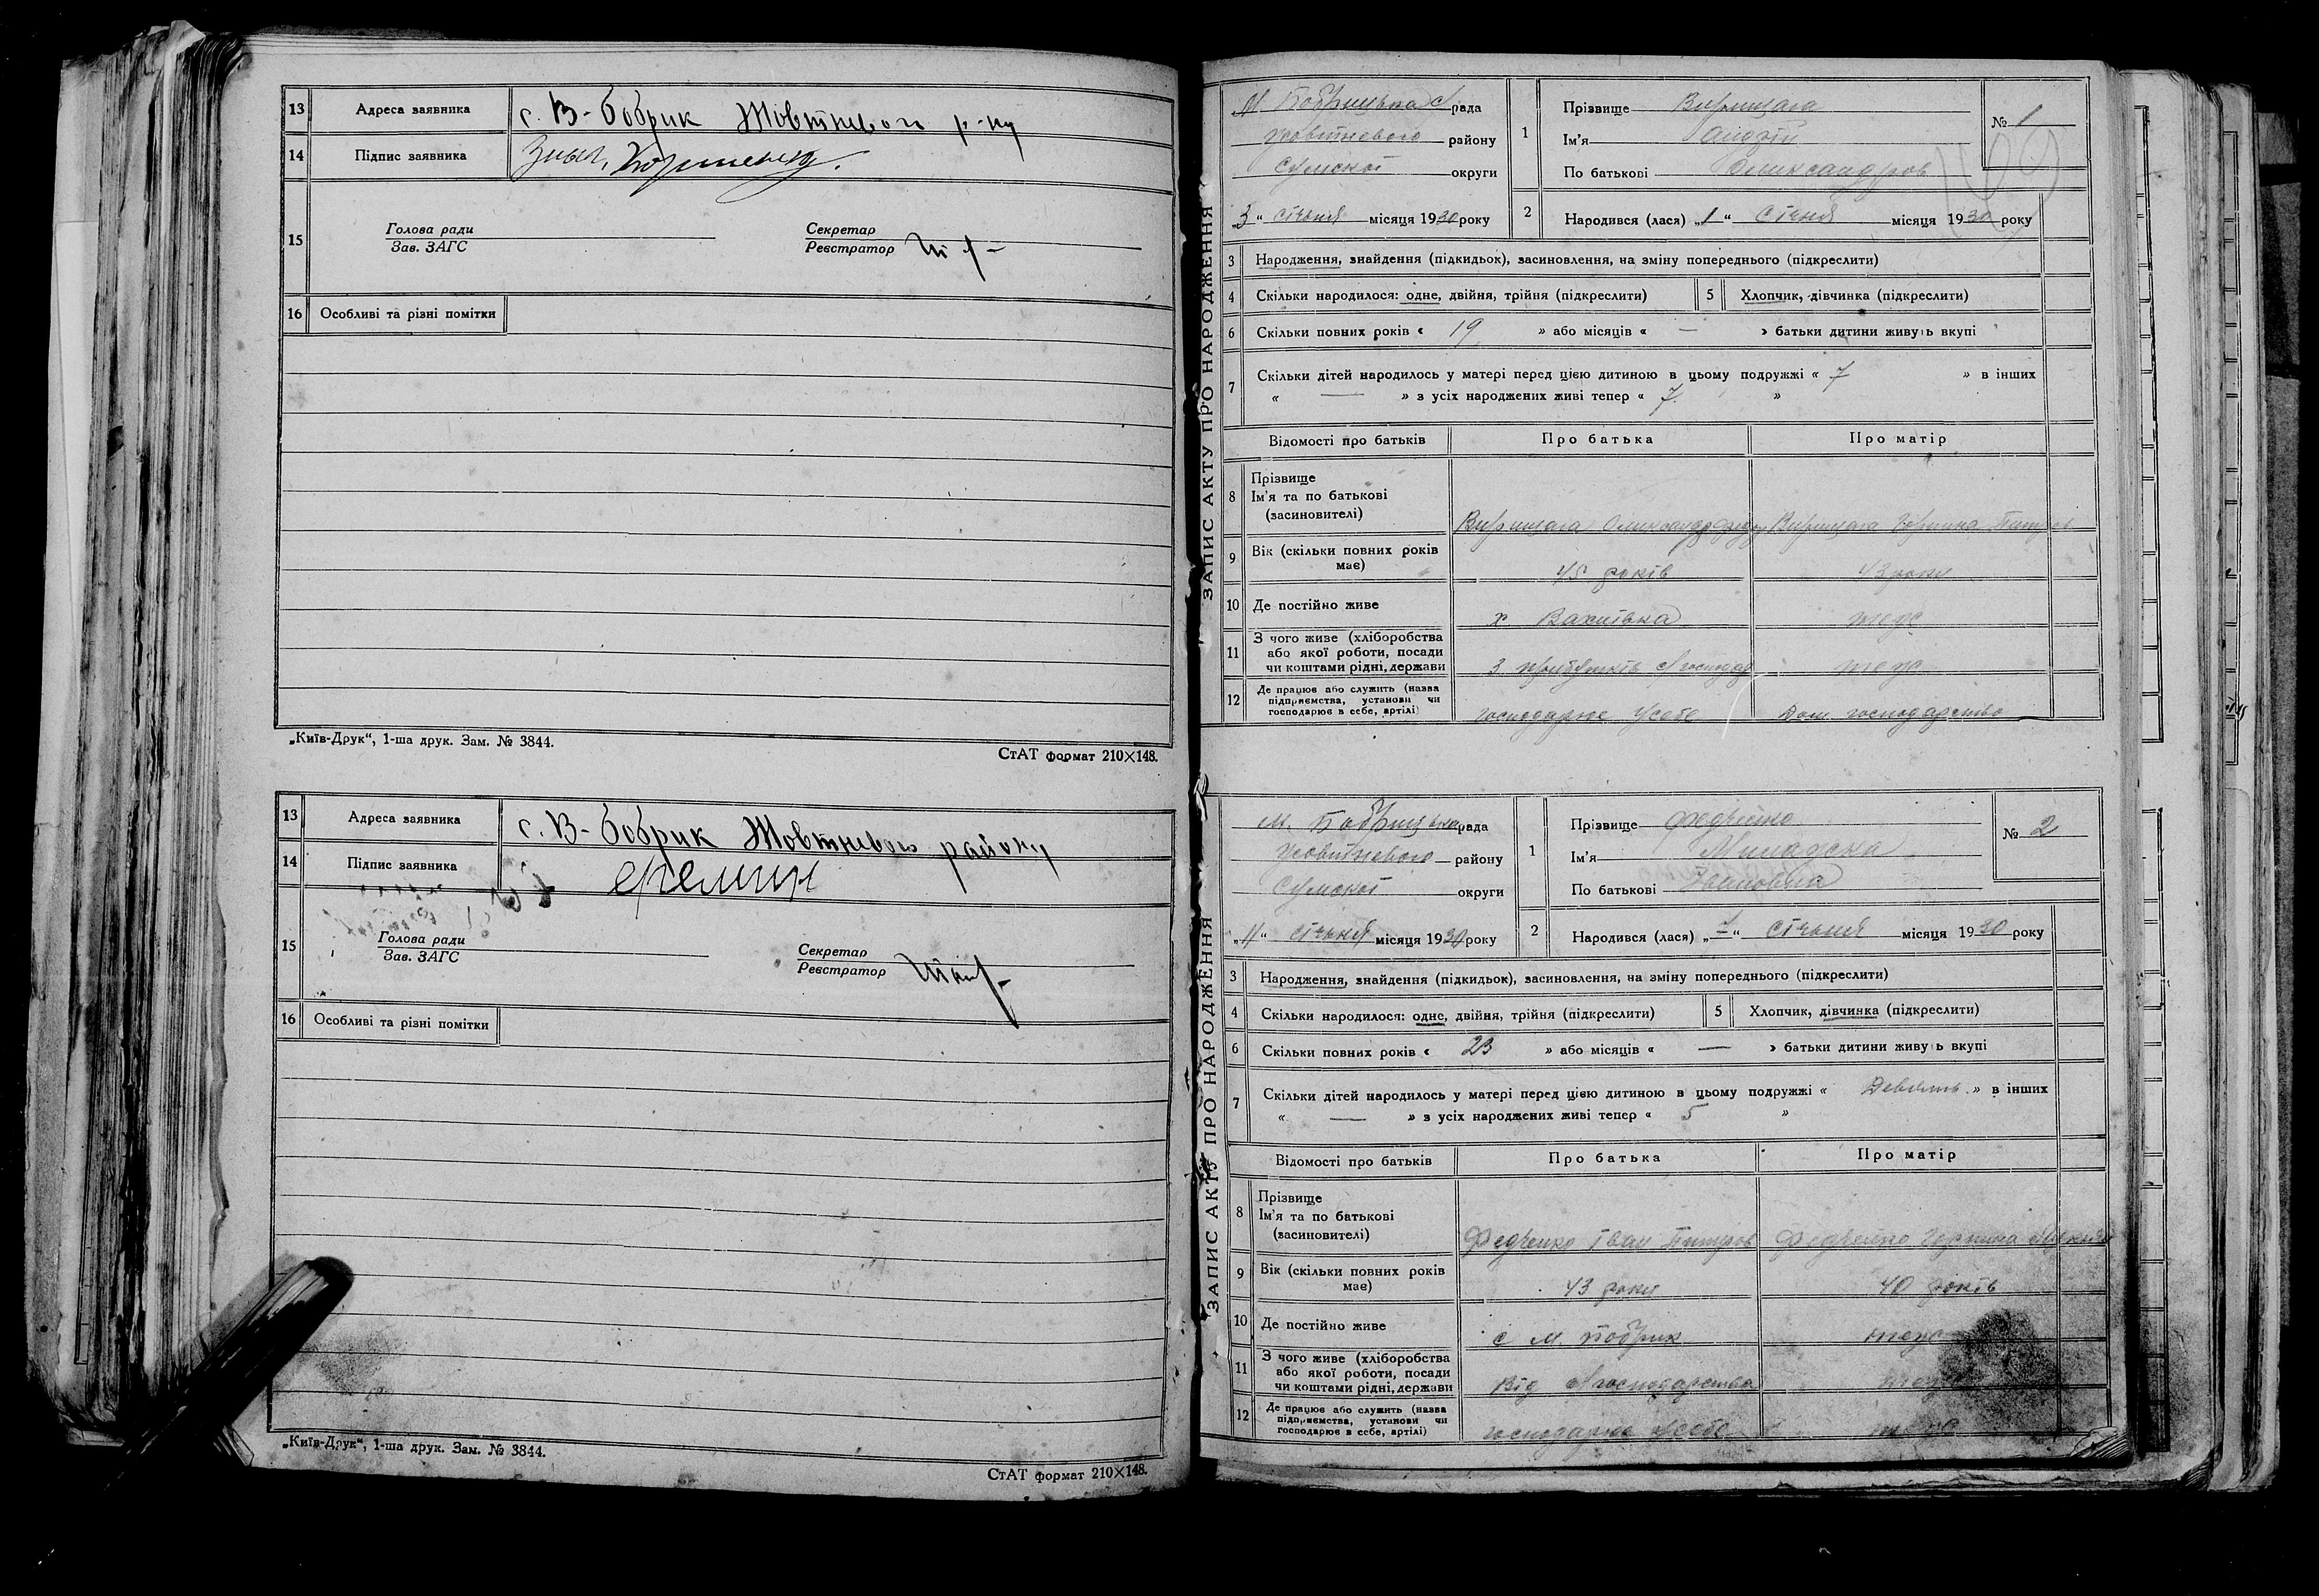 13 Адреса заявника с. В-Бобрик Жовтневого р-ну
14 Підпис заявника
15 Голова ради
Зав. ЗАГС
Секретар
Реєстратор
16 Особливі та різні помітки
„Київ-Друк“, 1-ша друк. Зам. № 3844.
СтАТ формат 210×148.
13 Адреса заявника с. В-Бобрик Жовтневого району
14 Підпис заявника
15 Голова ради
Зав. ЗАГС
Секретар
Реєстратор
16 Особливі та різні помітки
„Київ-Друк“, 1-ша друк. Зам. № 3844.
СтАТ формат 210×148.
ЗАПИС АКТУ ПРО НАРОДЖЕННЯ
М. Бобрицька с/рада
Жовтневого району
Сумської округи
„3“ січня місяця 1930 року
1 Прізвище
Ім'я
По батькові Олександров
№ 1
2 Народився (лася) „1“ Січня місяця 1930 року
3 Народження, знайдення (підкидьок), засиновлення, на зміну попереднього (підкреслити)
4 Скільки народилося: одне, двійня, трійня (підкреслити)
5 Хлопчик, дівчинка (підкреслити)
6 Скільки повних років « 19 » або місяців « — » батьки дитини живуть вкупі
7 Скільки дітей народилось у матері перед цією дитиною в цьому подружжі « 7 » в інших
« — » з усіх народжених живі тепер « 7 »
Відомості про батьків Про батька Про матір
8 Прізвище
Ім'я та по батькові
(засиновителі)
9 Вік (скільки повних років
має) 45 років 43 роки
10 Де постійно живе х. теж
11 З чого живе (хліборобства
або якої роботи, посади
чи коштами рідні, держави з прибутків с/господар теж
12 Де працює або служить (назва
підприємства, установи чи
господарює в себе, артілі) господарює у себе Дом. господарство
ЗАПИС АКТУ ПРО НАРОДЖЕННЯ
М. Бобрицька рада
Жовтневого району
Сумської округи
„11“ січня місяця 1930 року
1 Прізвище Федченко
Ім'я
По батькові Івановна
№ 2
2 Народився (лася) „7“ Січня місяця 1930 року
3 Народження, знайдення (підкидьок), засиновлення, на зміну попереднього (підкреслити)
4 Скільки народилося: одне, двійня, трійня (підкреслити)
5 Хлопчик, дівчинка (підкреслити)
6 Скільки повних років « 23 » або місяців « — » батьки дитини живуть вкупі
7 Скільки дітей народилось у матері перед цією дитиною в цьому подружжі « Девять » в інших
« — » з усіх народжених живі тепер « 5 »
Відомості про батьків Про батька Про матір
8 Прізвище
Ім'я та по батькові
(засиновителі) Федченко Іван Петров Федченко
9 Вік (скільки повних років
має) 43 роки 40 років
10 Де постійно живе с М. Бобрик теж
11 З чого живе (хліборобства
або якої роботи, посади
чи коштами рідні, держави Від с/господарства теж
12 Де працює або служить (назва
підприємства, установи чи
господарює в себе, артілі) господарює у себе теж